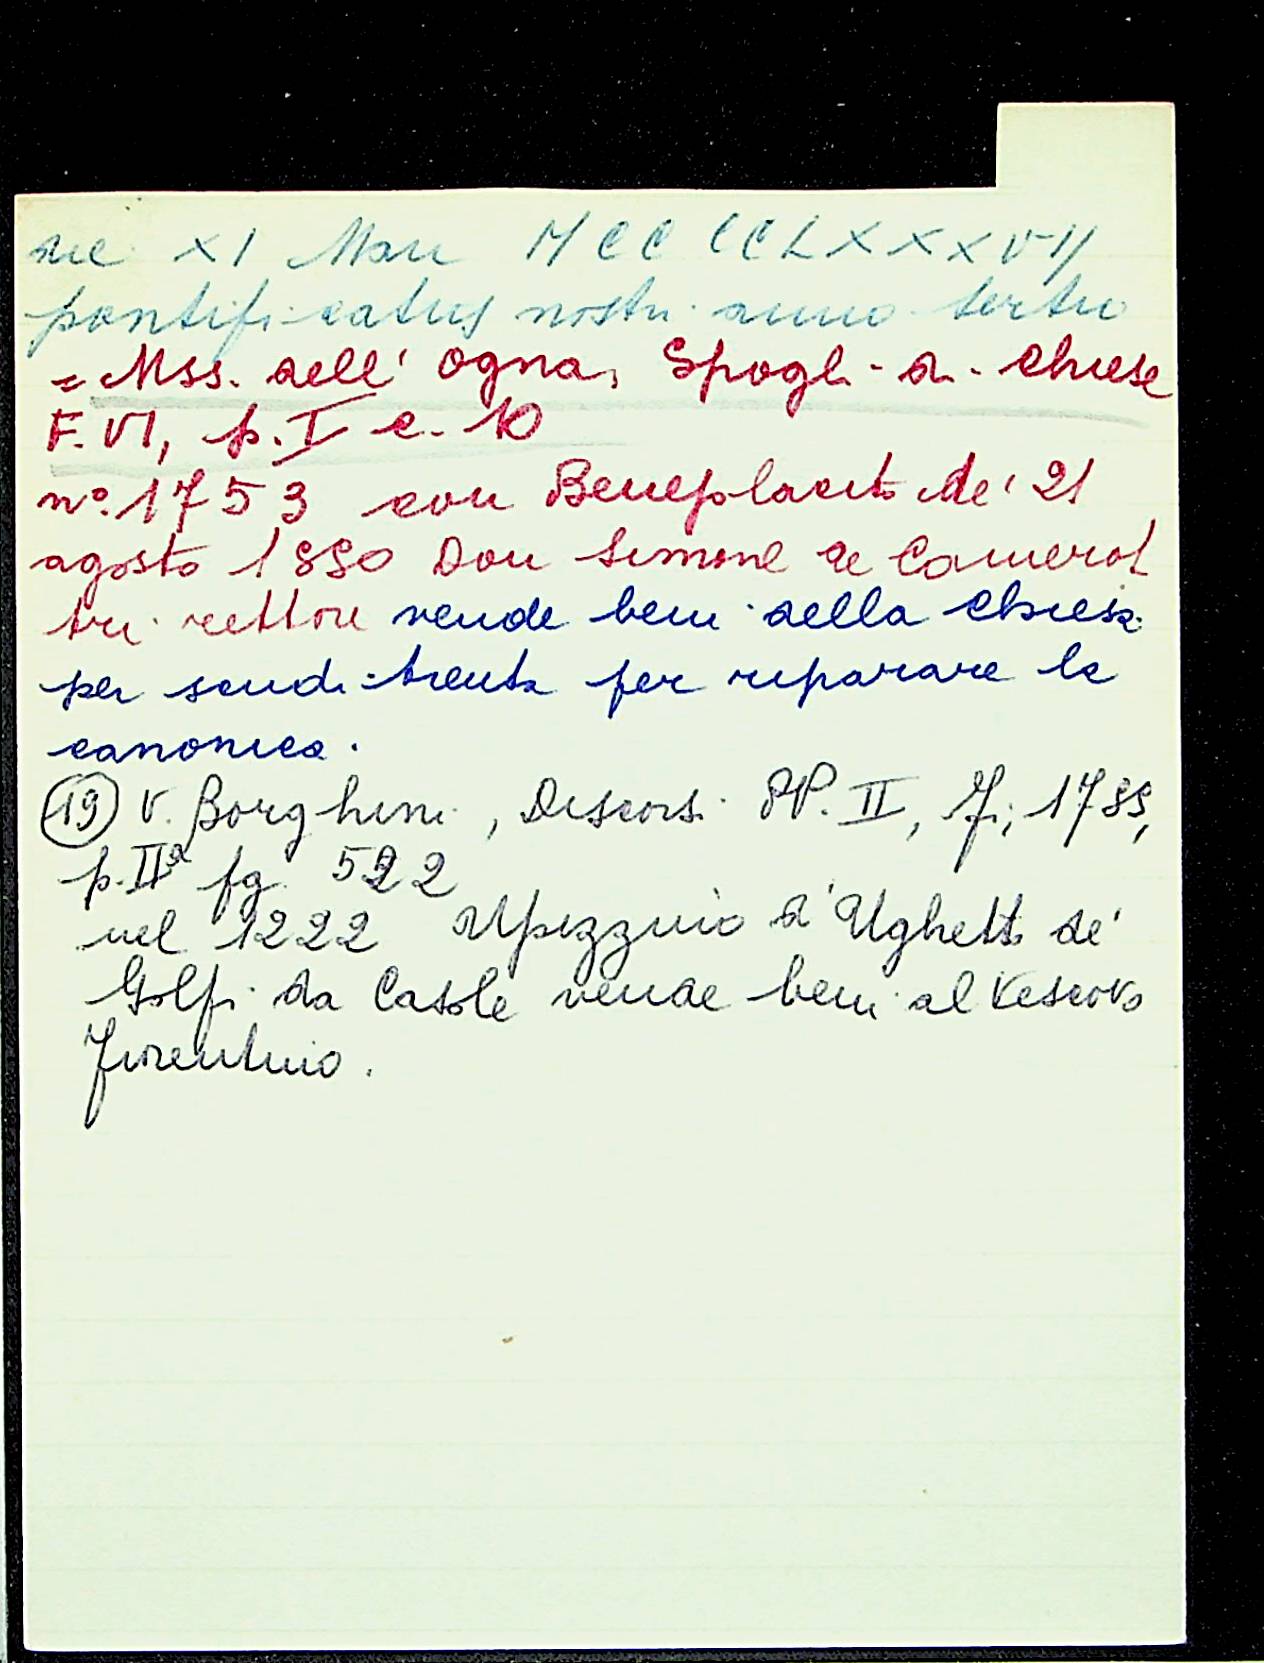 die XI Marii MCCCCLXXXVII
pontificatus nostri anno tertio
= Mss. dell' Ogna, Spogli di Chiese
F. VI, p. I c. 10
n°. 1753 con Beneplacito de' 21
agosto 1880 Don Simone de
tri rettore vende beni della Chiesa
per scudi trenta per riparare la
canonica.
(19) V. Borghini, Discorsi PP. II, Fi, 1755,
p. IIª fg. 522
nel 1222 Upizzino d'Ughetto de'
Golfi da Casole vende beni al Vescovo
fiorentino.